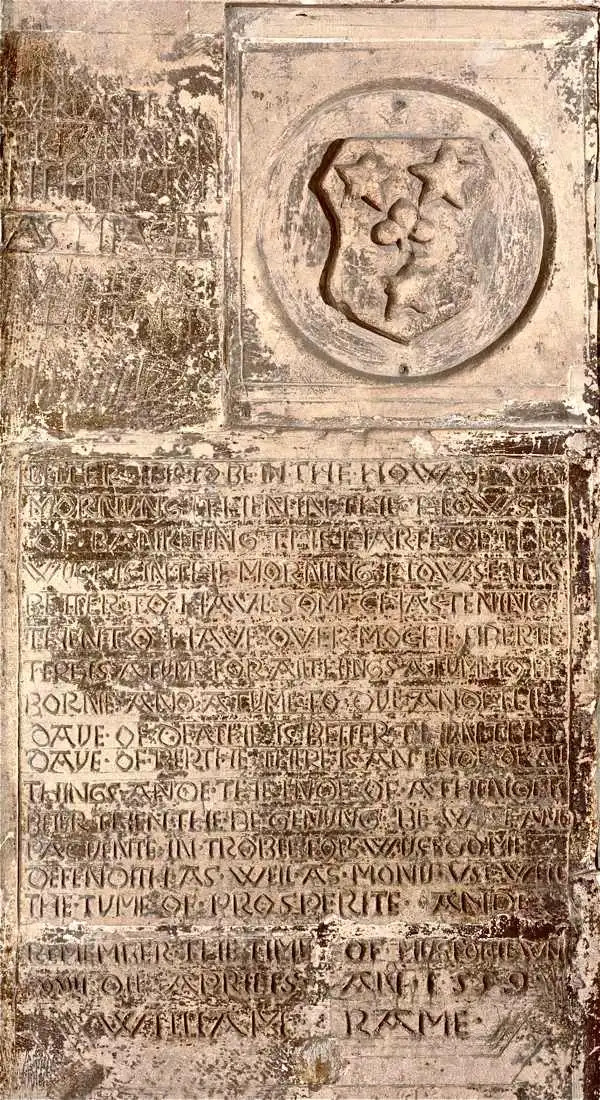 BETTER · IT IS · TO BE · IN · THE · HOWSE OF
MORNUNG · THEN IN · THE · HOWSE
OF · BANKETING · THE HARTE · OF · THE
WUSE · IS IN THE · MORNING · HOWSE IT IS
BETTER · TO · HAVE · SOME CHASTENING
THEN TO · HAVE · OVER · MOCHE · LIBERTE
TERE IS · A TUME · FOR · AL THINGS · A TUME · TO BE
BORNE · AND · A TUME · TO · DUE · AND THE
DAUE · OF DEATHE IS BETTER · THEN THE
DAUE · OF BERTHE THERE IS AN ENDE · OF AL
THINGS · ANDE · THE ENDE · OF · A THINGE IS
BETER · THEN THE · BEGENUNG · BE · WUSE · AND
PACUENTE · IN TROBLE · FOR · WUSEDOME
DEFENDITHE · AS · WELL · AS · MONU · USE · WELL
THE · TUME · OF · PROSPERITE · ANDE
REMEMBER · THE · TIME OF · MISFORTEWN
DIE APRILIS AN · 1559
WILLIAM RAME ·